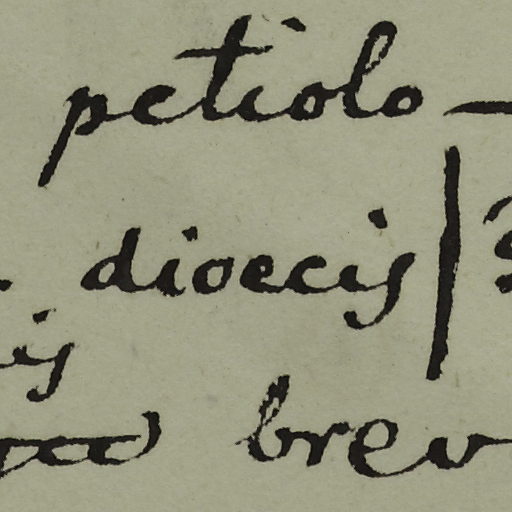 petiolo —
dioecis |
is
brev